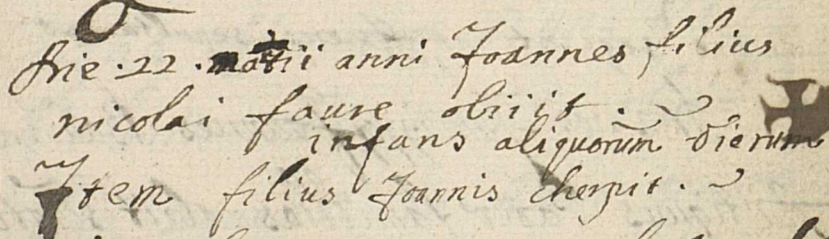 Die .22. martii anni Joannes filius
nicolai faure obiiit .
infans aliquorum dierum
Item filius Joannis cherpit .